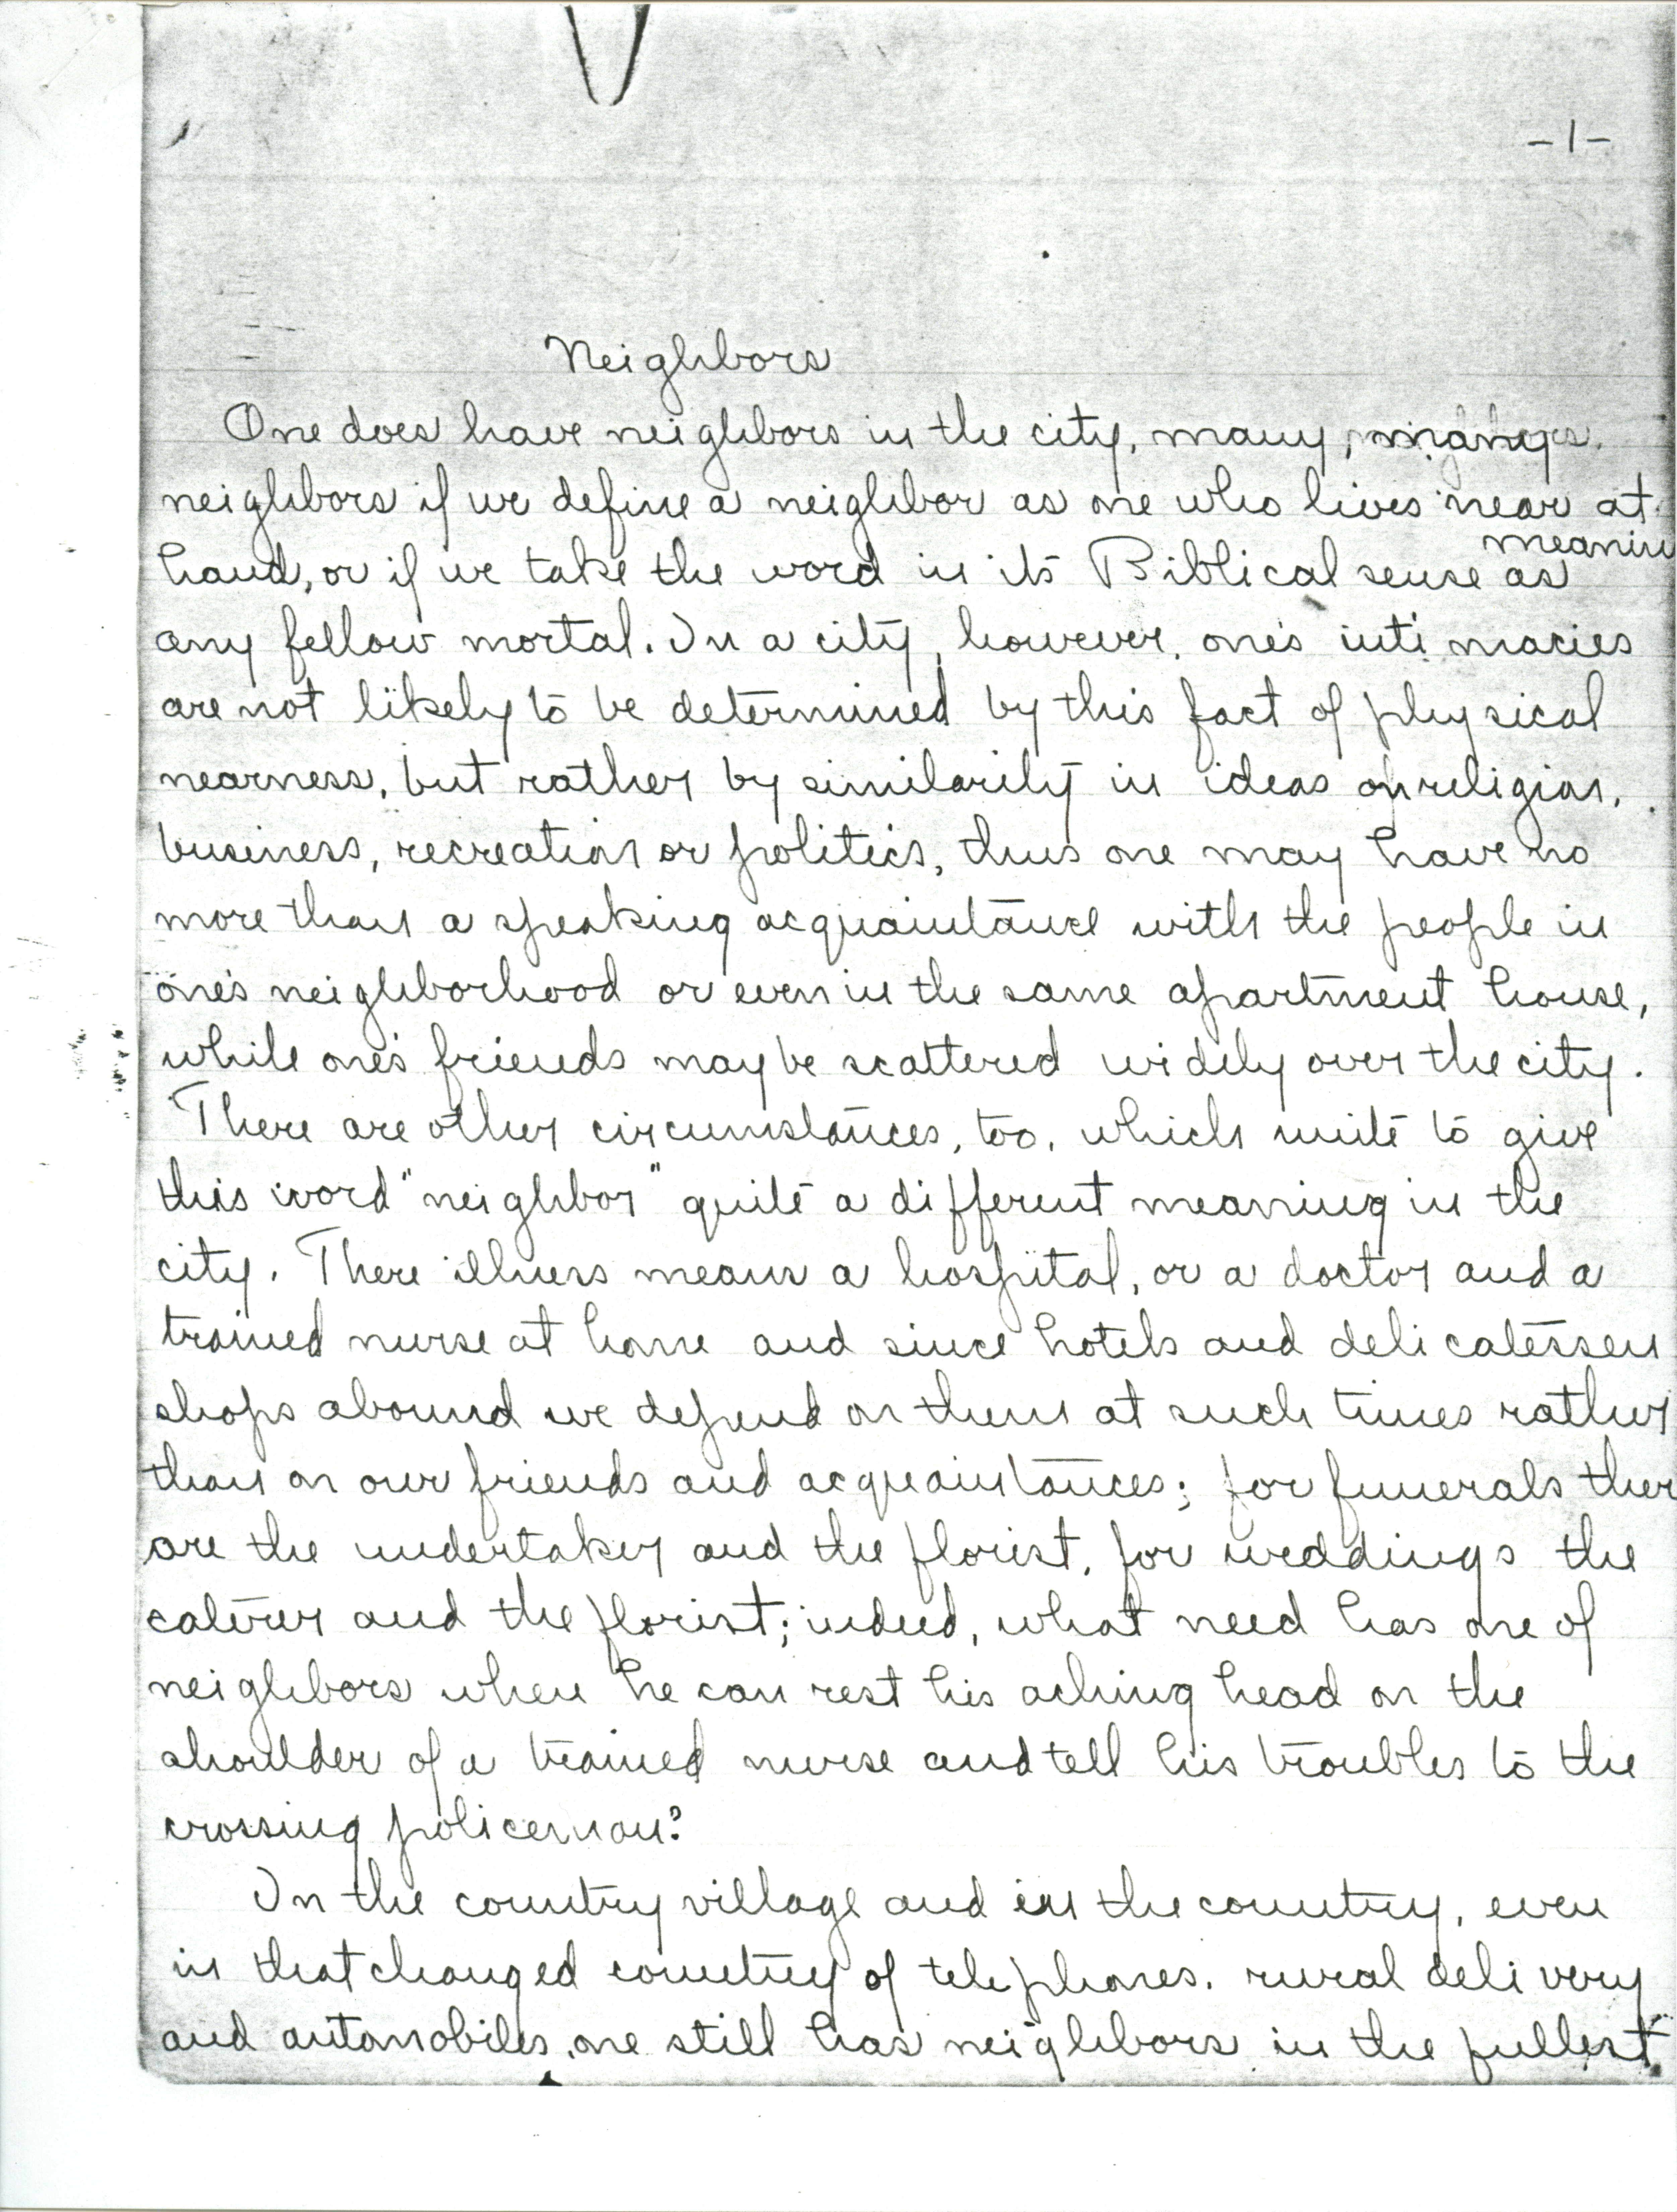 -1-
Neighbors
One does have neighbors in the city, many, many
neighbors if we define a neighbor as one who lives near at
meanin
hand, or if we take the word in its Biblical sense as
any fellow mortal. In a city, however, one's intimacies
are not likely to be determined by this fact of physical
nearness, but rather by similarity in ideas on religion,
business, recreation or politics, thus one may have no
more than a speaking acquaintance with the people in
one's neighborhood or even in the same apartment house,
while one's friends may be scattered widely over the city.
There are other circumstances, too, which unite to give
this word "neighbor" quite a different meaning in the
city. There illness means a hospital, or a doctor and a
trained nurse at home and since hotels and delicatessen
shops abound we depend on them at such times rather
than on our friends and acquaintances; for funerals ther
are the undertaker and the florist, for weddings the
caterer and the florist; indeed, what need has one of
neighbors when he can rest his aching head on the
shoulder of a trained nurse and tell his troubles to the
crossing policeman?
In the country village and in the country, even
in that changed country of telephones, rural delivery
and automobiles, one still has neighbors in the fullest